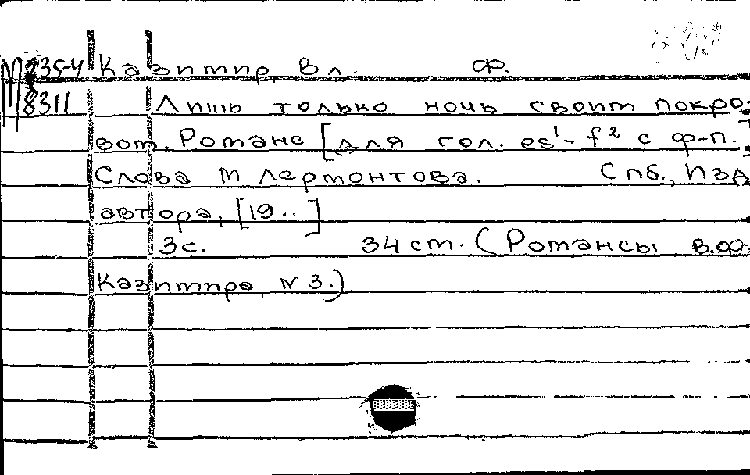 М 235-4 Казимир, Вл. Ф.
8311 Лишь только ночь своим покро-
вом. Романс [для гол. es¹- f² с ф-п.]
Слова М Лермонтова. Спб., Изд
автора, [19..]
3с. 34 см. (Романсы В.Ф.
Казимира, № 3.)